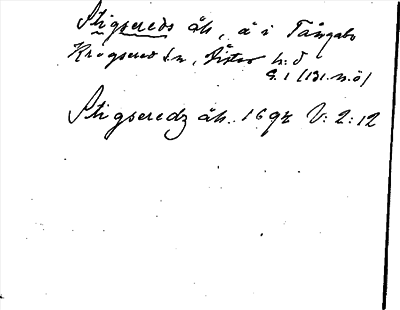 Stigsereds åh, å i Tångabo
Krogsered sn, Årstad h:d
G. 1 (131. n.ö)
Stigseredz åh. 1692 V: 2: 12